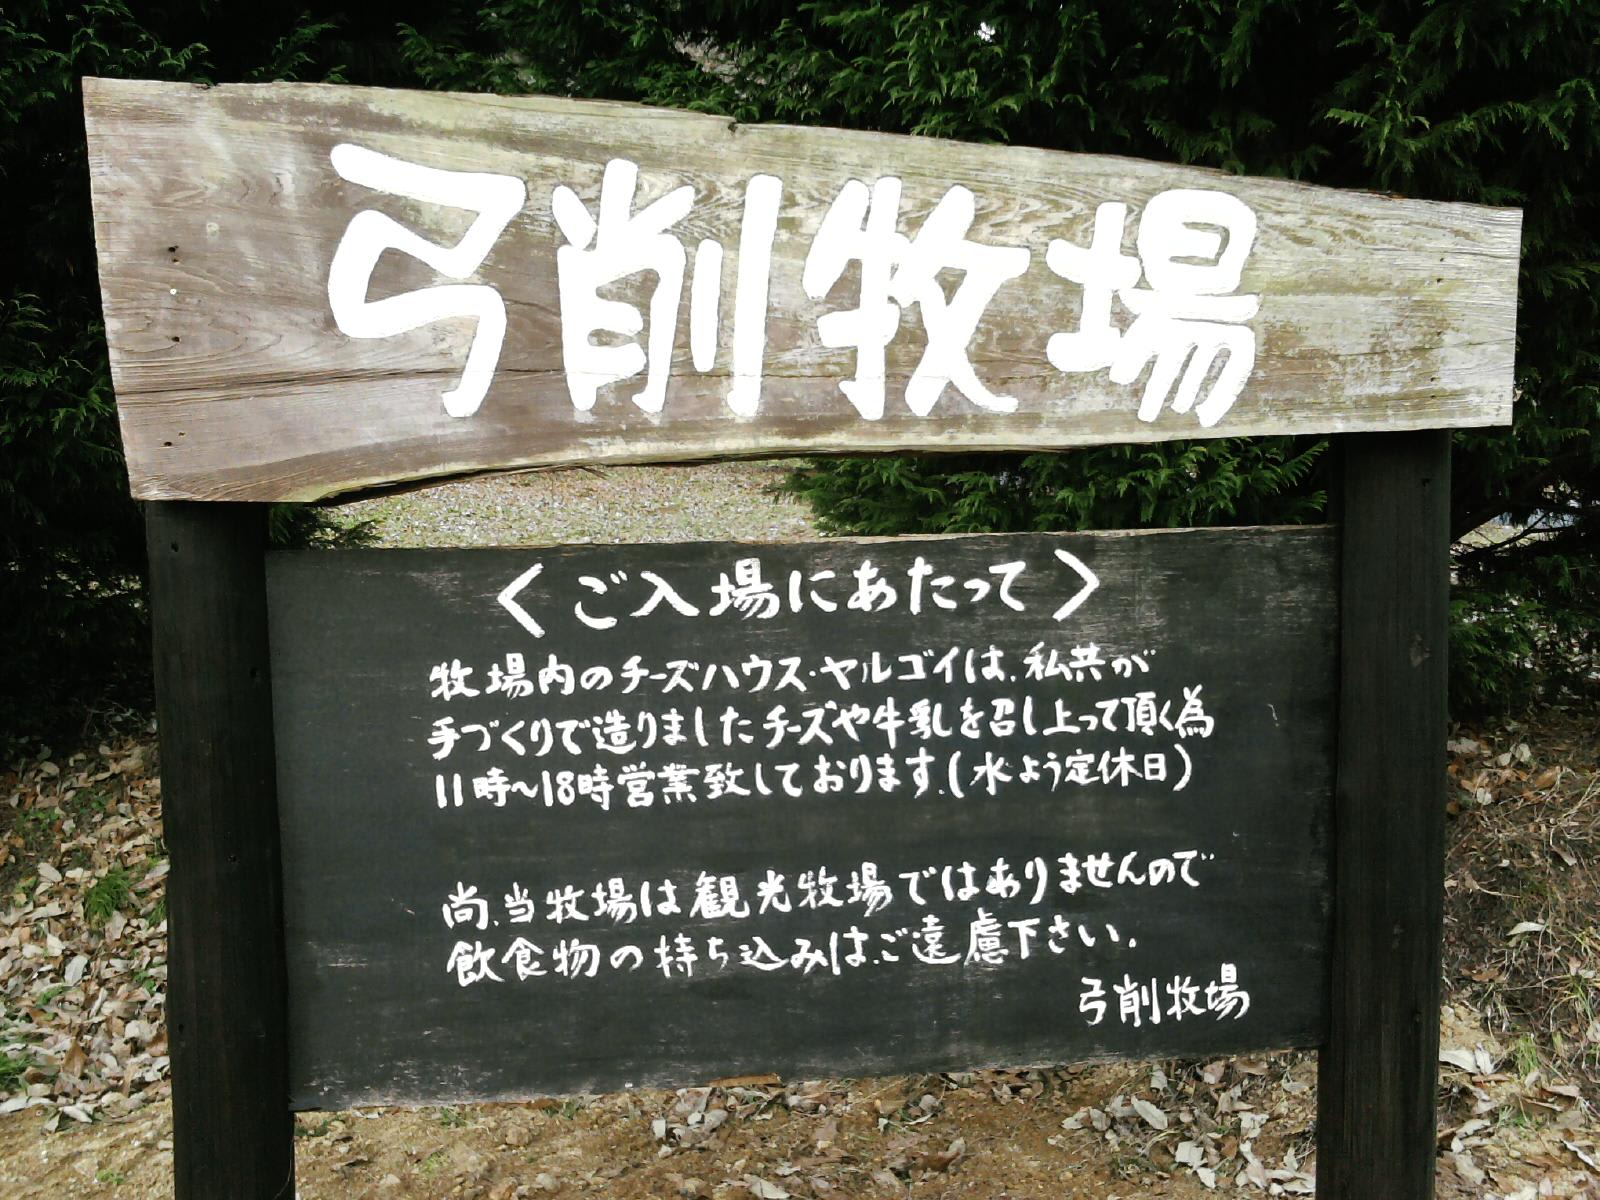 弓削牧場
〈ご入場にあたって〉
牧場内のチーズハウス・ヤルゴイは、私共が
手づくりで造りましたチーズや牛乳を召し上って頂く為
11時~18時営業致しております。(水よう定休日)
尚、当牧場は観光牧場ではありませんので
飲食物の持ち込みは、ご遠慮下さい。
弓削牧場